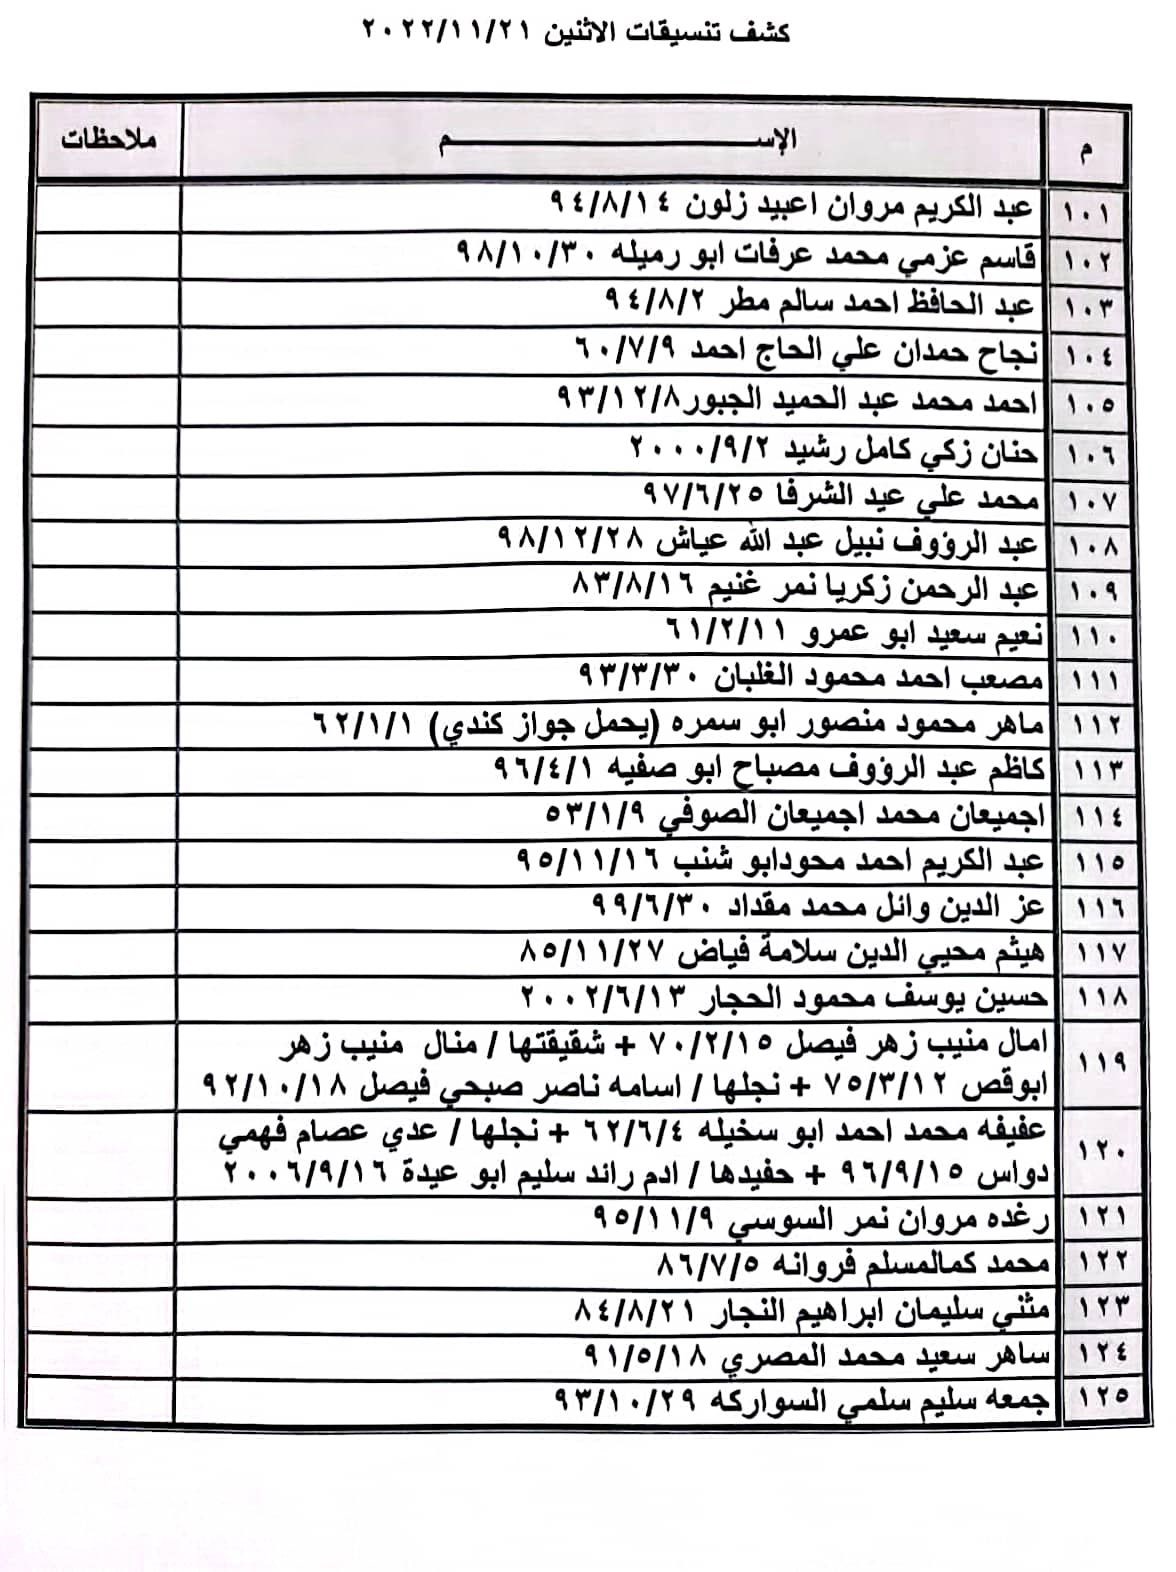 كشف تنسيقات الاثنين ٢٠٢٢/١١/٢١
م الإســـــــــــــم ملاحظات
١٠١ عبد الكريم مروان اعبيد زلون ٩٤/٨/١٤
١٠٢ قاسم عزمي محمد عرفات ابو رميله ٩٨/١٠/٣٠
١٠٣ عبد الحافظ احمد سالم مطر ٩٤/٨/٢
١٠٤ نجاح حمدان علي الحاج احمد ٦٠/٧/٩
١٠٥ احمد محمد عبد الحميد الجبور٩٣/١٢/٨
١٠٦ حنان زكي كامل رشيد ٢٠٠٠/٩/٢
١٠٧ محمد علي عيد الشرفا ٩٧/٦/٢٥
١٠٨ عبد الرؤوف نبيل عبد الله عياش ٩٨/١٢/٢٨
١٠٩ عبد الرحمن زكريا نمر غنيم ٨٣/٨/١٦
١١٠ نعيم سعيد ابو عمرو ٦١/٢/١١
١١١ مصعب احمد محمود الغلبان ٩٣/٣/٣٠
١١٢ ماهر محمود منصور ابو سمره (يحمل جواز كندي) ٦٢/١/١
١١٣ كاظم عبد الرؤوف مصباح ابو صفيه ٩٦/٤/١
١١٤ اجميعان محمد اجميعان الصوفي ٥٣/١/٩
١١٥ عبد الكريم احمد محودابو شنب ٩٥/١١/١٦
١١٦ عز الدين وائل محمد مقداد ٩٩/٦/٣٠
١١٧ هيثم محيي الدين سلامة فياض ٨٥/١١/٢٧
١١٨ حسين يوسف محمود الحجار ٢٠٠٢/٦/١٣
١١٩ امال منيب زهر فيصل ٧٠/٢/١٥ + شقيقتها / منال منيب زهر
ابوقص ٧٥/٣/١٢ + نجلها / اسامه ناصر صبحي فيصل ٩٢/١٠/١٨
١٢٠ عفيفه محمد احمد ابو سخيله ٦٢/٦/٤ + نجلها / عدي عصام فهمي
دواس ٩٦/٩/١٥ + حفيدها / ادم رائد سليم ابو عيدة ٢٠٠٦/٩/١٦
١٢١ رغده مروان نمر السوسي ٩٥/١١/٩
١٢٢ محمد كمالمسلم فروانه ٨٦/٧/٥
١٢٣ مثني سليمان ابراهيم النجار ٨٤/٨/٢١
١٢٤ ساهر سعيد محمد المصري ٩١/٥/١٨
١٢٥ جمعه سليم سلمي السواركه ٩٣/١٠/٢٩